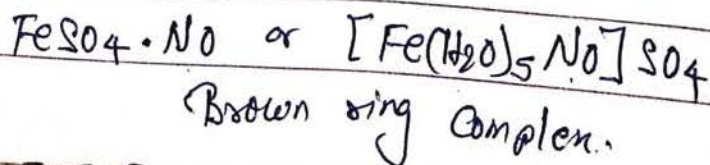 FeSO4 · NO or [Fe(H2O)5 NO] SO4
Brown ring Complex.